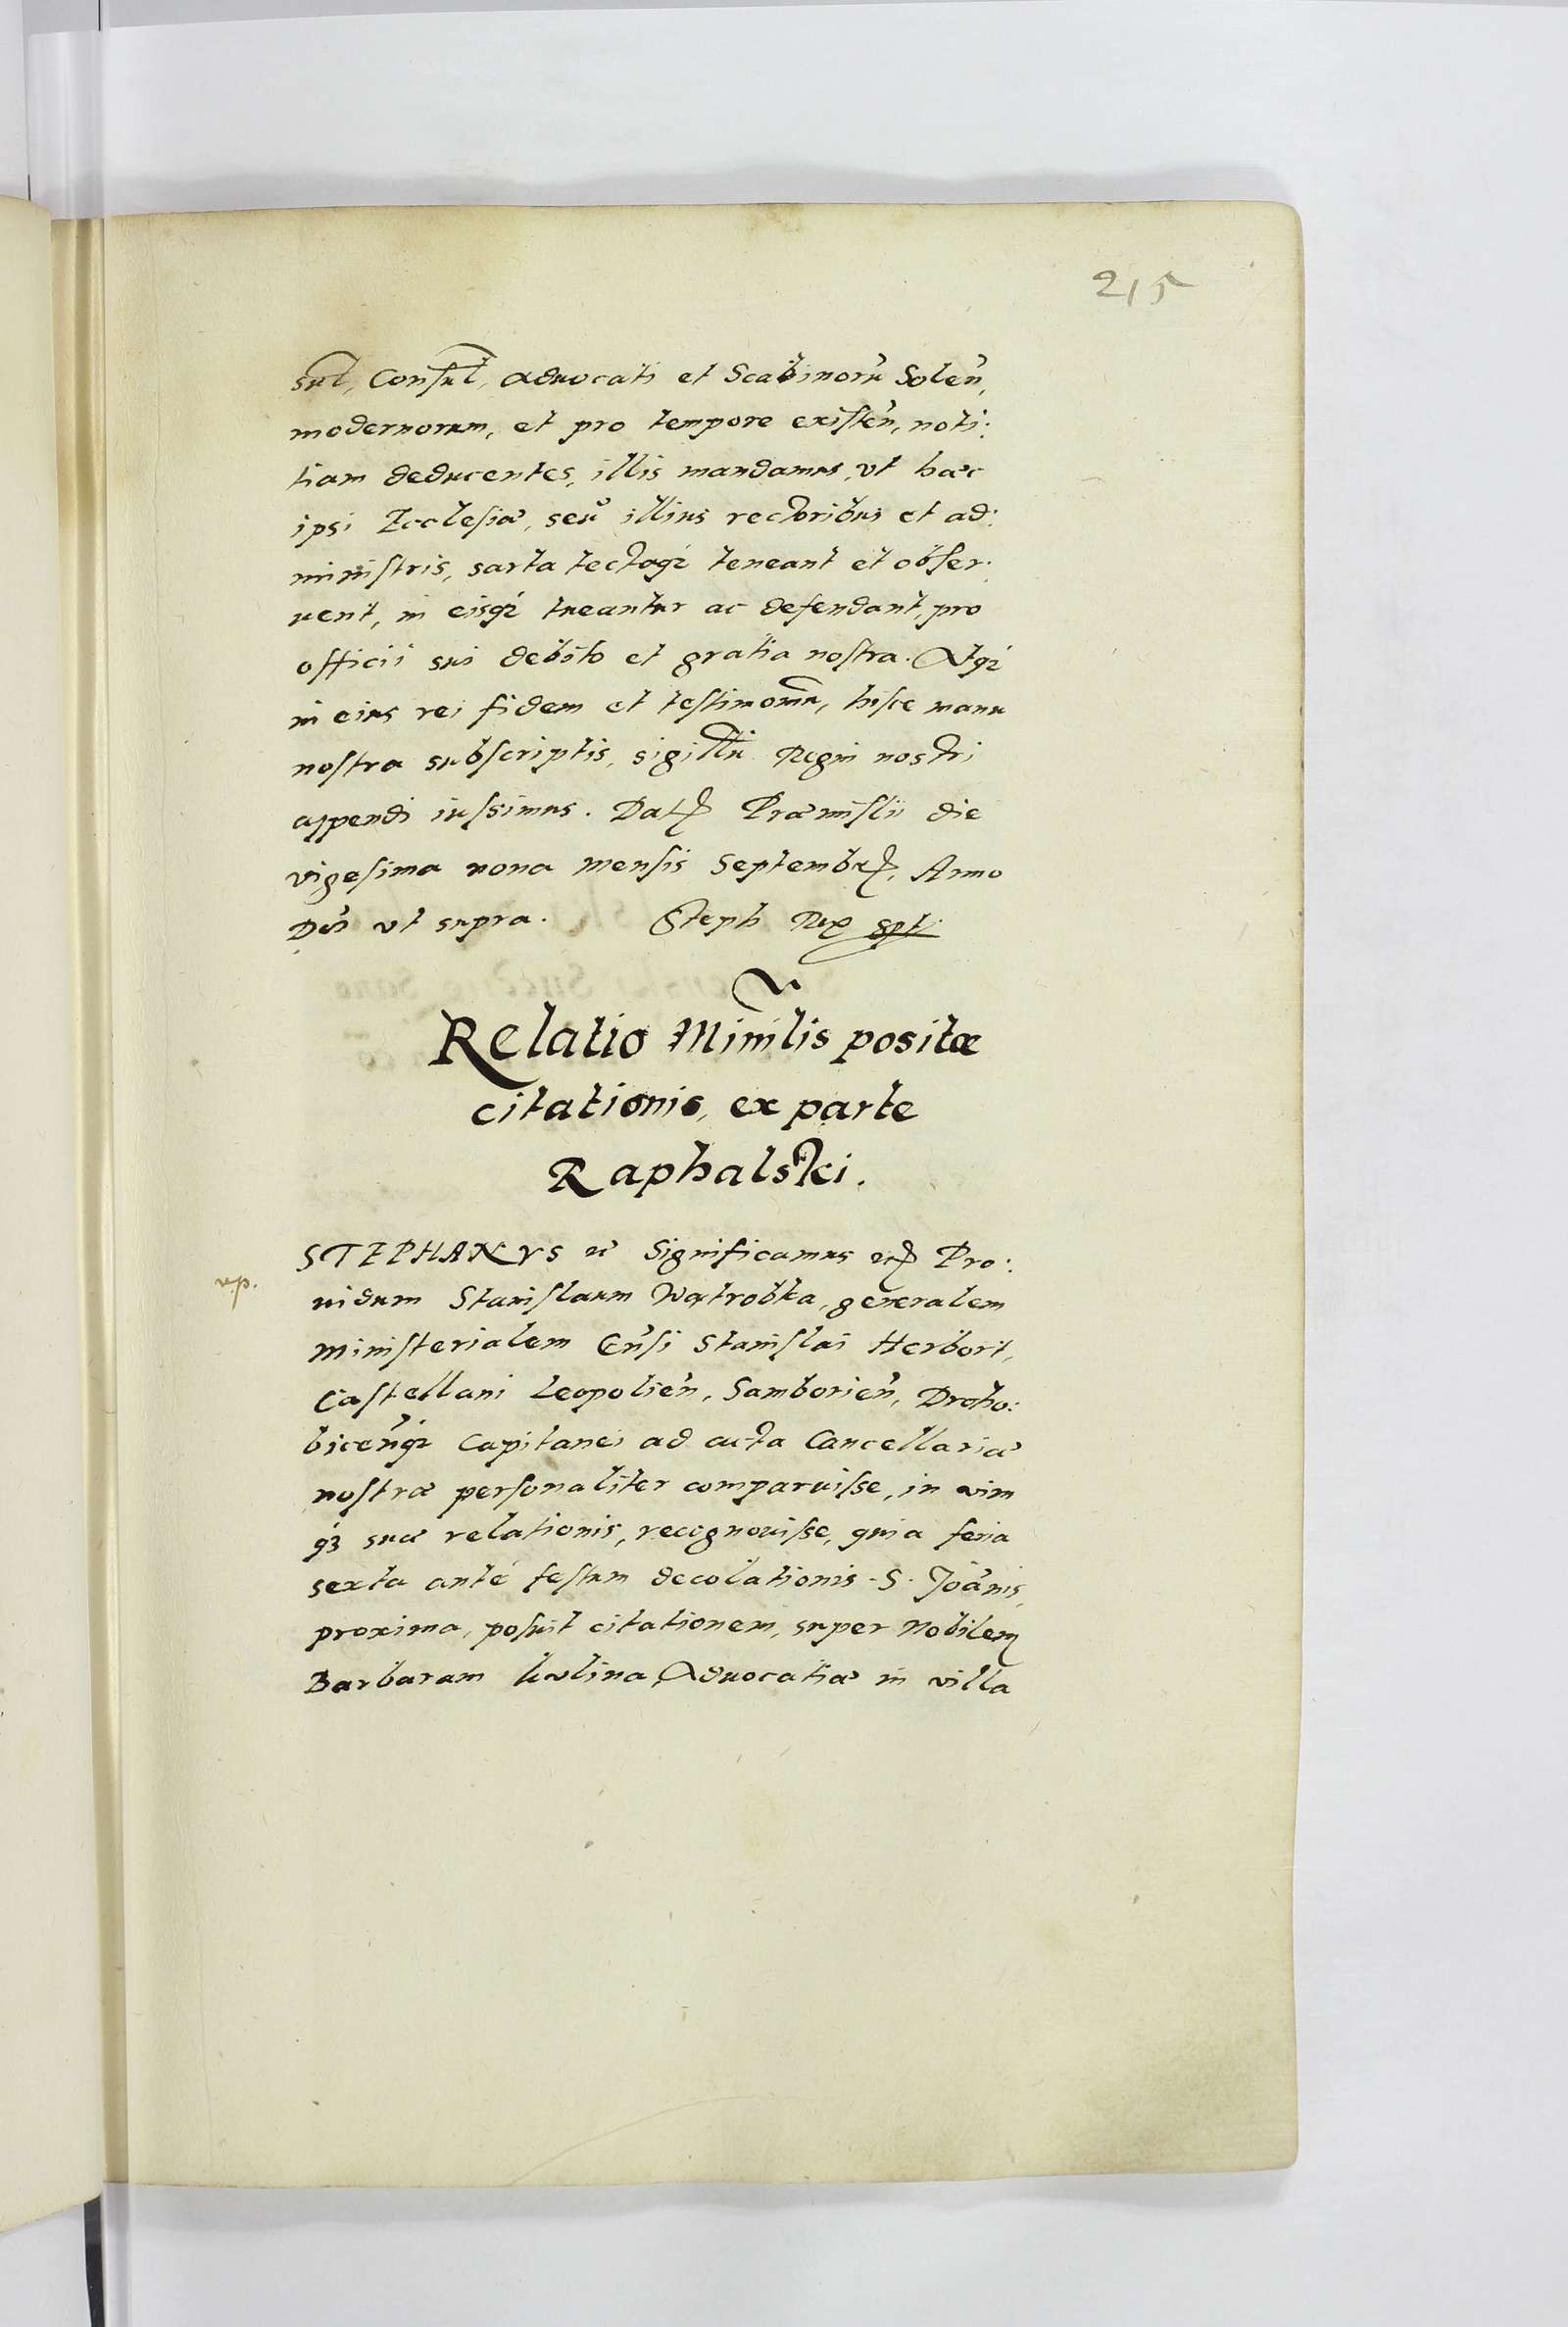 215
sul, Consul, Aduocati et Scabinorũ Solen̄,
modernorum, et pro tempore existen̄, noti:
tiam deducentes, illis mandamus, vt hæc
ipsi Ecclesiæ, seu illius rectoribus et ad:
ministris, sarta tectaq; teneant et obser:
uent, in eisq; tueantur ac defendant, pro
officii sui debito et gratia nostra. Atq;
in eius rei fidem et testimoniũ, hisce manu
nostra subscriptis, sigillũ Regni nostri
appendi iussimus. Dat Præmisliæ die
vigesima nona mensis Septembr, Anno
Dn̄i vt supra. Steph Rex spt
Relatio Minilis positæ
citationis, ex parte
Raphalski.
STEPHANVS &c Significamus etc Pro:
uidum Stanislaum Wątrobka, generalem
Ministerialem Gn̄si Stanislai Herbort,
Castellani Leopolien̄, Samborien̄, Droho:
bicen̄q; Capitanei ad acta Cancellariæ
nostræ personaliter comparuisse, in vim
q; suæ relationis, recognouisse, quia feria
sexta ante festum decolationis S. Joānis,
proxima, posuit citationem, super Nobilem
Barbaram Aduocatiæ in villa